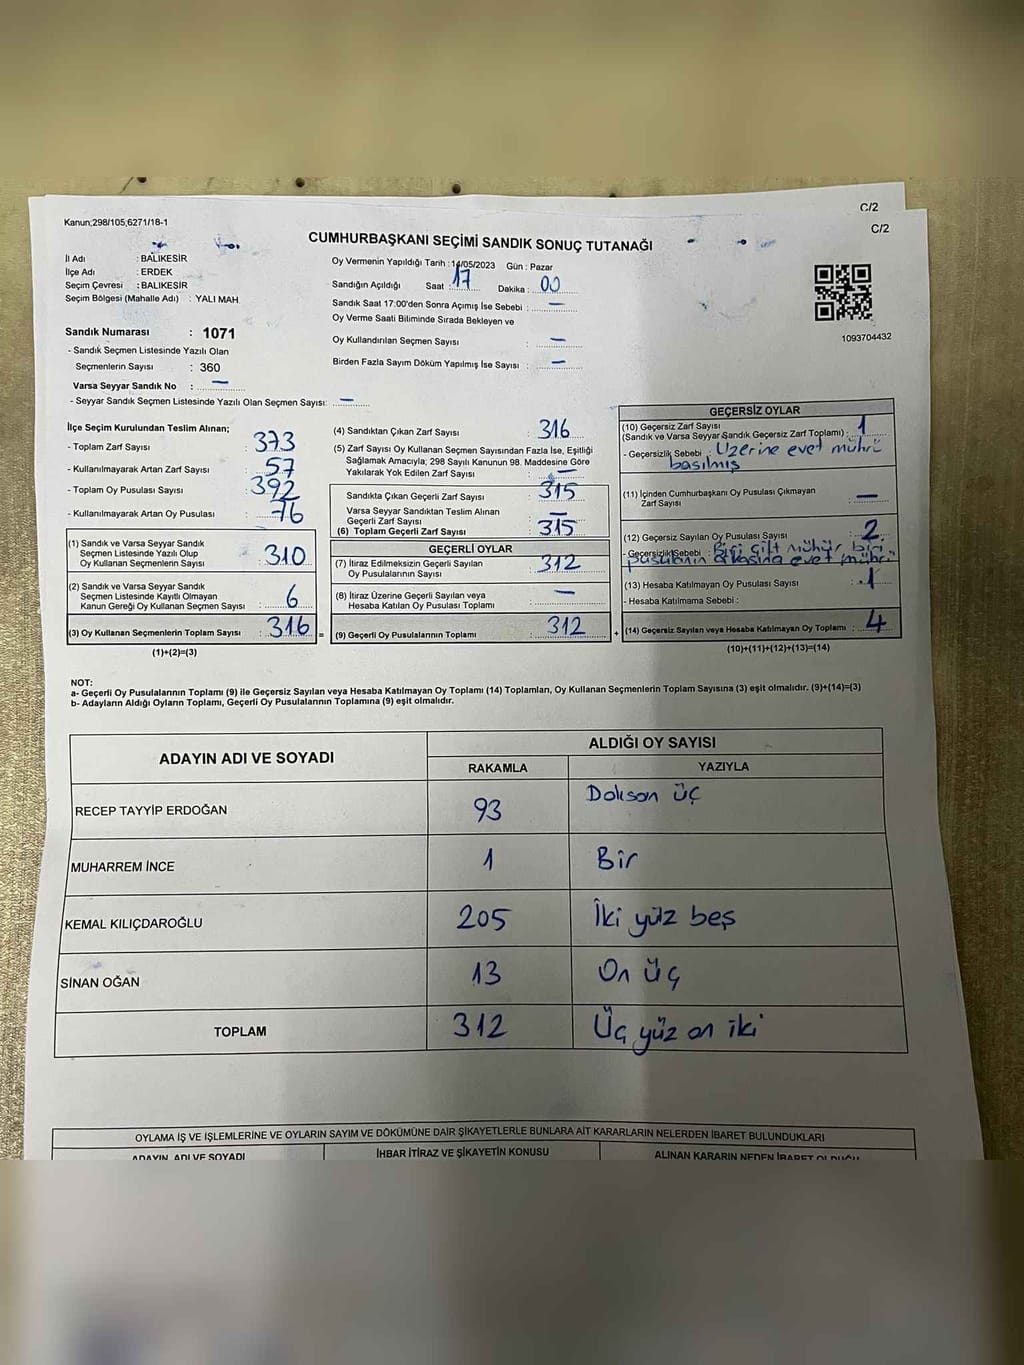 C/2
C/2
Kanun;298/105,6271/18-1
CUMHURBAŞKANI SEÇİMİ SANDIK SONUÇ TUTANAĞI
İl Adı : BALIKESİR
İlçe Adı : ERDEK
Seçim Çevresi : BALIKESİR
Seçim Bölgesi (Mahalle Adı) : YALI MAH.
Sandık Numarası : 1071
- Sandık Seçmen Listesinde Yazılı Olan
Seçmenlerin Sayısı : 360
Varsa Seyyar Sandık No : —
- Seyyar Sandık Seçmen Listesinde Yazılı Olan Seçmen Sayısı: —
Oy Vermenin Yapıldığı Tarih : 14/05/2023 Gün : Pazar
Sandığın Açıldığı Saat : 17 Dakika : 00
Sandık Saat 17:00'den Sonra Açımış İse Sebebi : —
Oy Verme Saati Bitiminde Sırada Bekleyen ve
Oy Kullandırılan Seçmen Sayısı : —
Birden Fazla Sayım Döküm Yapılmış İse Sayısı : —
1093704432
İlçe Seçim Kurulundan Teslim Alınan;
- Toplam Zarf Sayısı : 373
- Kullanılmayarak Artan Zarf Sayısı : 57
- Toplam Oy Pusulası Sayısı : 392
- Kullanılmayarak Artan Oy Pusulası : 76
(1) Sandık ve Varsa Seyyar Sandık
Seçmen Listesinde Yazılı Olup
Oy Kullanan Seçmenlerin Sayısı : 310
(2) Sandık ve Varsa Seyyar Sandık
Seçmen Listesinde Kayıtlı Olmayan
Kanun Gereği Oy Kullanan Seçmen Sayısı : 6
(3) Oy Kullanan Seçmenlerin Toplam Sayısı : 316 =
(1)+(2)=(3)
(4) Sandıktan Çıkan Zarf Sayısı : 316
(5) Zarf Sayısı Oy Kullanan Seçmen Sayısından Fazla İse, Eşitliği
Sağlamak Amacıyla; 298 Sayılı Kanunun 98. Maddesine Göre
Yakılarak Yok Edilen Zarf Sayısı : —
Sandıkta Çıkan Geçerli Zarf Sayısı : 315
Varsa Seyyar Sandıktan Teslim Alınan
Geçerli Zarf Sayısı : —
(6) Toplam Geçerli Zarf Sayısı : 315
GEÇERLİ OYLAR
(7) İtiraz Edilmeksizin Geçerli Sayılan
Oy Pusulalarının Sayısı : 312
(8) İtiraz Üzerine Geçerli Sayılan veya
Hesaba Katılan Oy Pusulası Toplamı : —
(9) Geçerli Oy Pusulalarının Toplamı : 312 +
GEÇERSİZ OYLAR
(10) Geçersiz Zarf Sayısı
(Sandık ve Varsa Seyyar Sandık Geçersiz Zarf Toplamı) : 1
- Geçersizlik Sebebi : Üzerine evet mührü
basılmış
(11) İçinden Cumhurbaşkanı Oy Pusulası Çıkmayan
Zarf Sayısı : —
(12) Geçersiz Sayılan Oy Pusulası Sayısı : 2
- Geçersizlik Sebebi : Biri çift mühür biri
pusulanın arkasına evet mührü
(13) Hesaba Katılmayan Oy Pusulası Sayısı : 1
- Hesaba Katılmama Sebebi :
(14) Geçersiz Sayılan veya Hesaba Katılmayan Oy Toplamı : 4
(10)+(11)+(12)+(13)=(14)
NOT:
a- Geçerli Oy Pusulalarının Toplamı (9) ile Geçersiz Sayılan veya Hesaba Katılmayan Oy Toplamı (14) Toplamları, Oy Kullanan Seçmenlerin Toplam Sayısına (3) eşit olmalıdır. (9)+(14)=(3)
b- Adayların Aldığı Oyların Toplamı, Geçerli Oy Pusulalarının Toplamına (9) eşit olmalıdır.
ADAYIN ADI VE SOYADI
ALDIĞI OY SAYISI
RAKAMLA YAZIYLA
RECEP TAYYİP ERDOĞAN 93 Doksan üç
MUHARREM İNCE 1 Bir
KEMAL KILIÇDAROĞLU 205 İki yüz beş
SİNAN OĞAN 13 On üç
TOPLAM 312 Üç yüz on iki
OYLAMA İŞ VE İŞLEMLERİNE VE OYLARIN SAYIM VE DÖKÜMÜNE DAİR ŞİKAYETLERLE BUNLARA AİT KARARLARIN NELERDEN İBARET BULUNDUKLARI
ADAYIN ADI VE SOYADI İHBAR İTİRAZ VE ŞİKAYETİN KONUSU ALINAN KARARIN NEDEN İBARET OLDUĞU